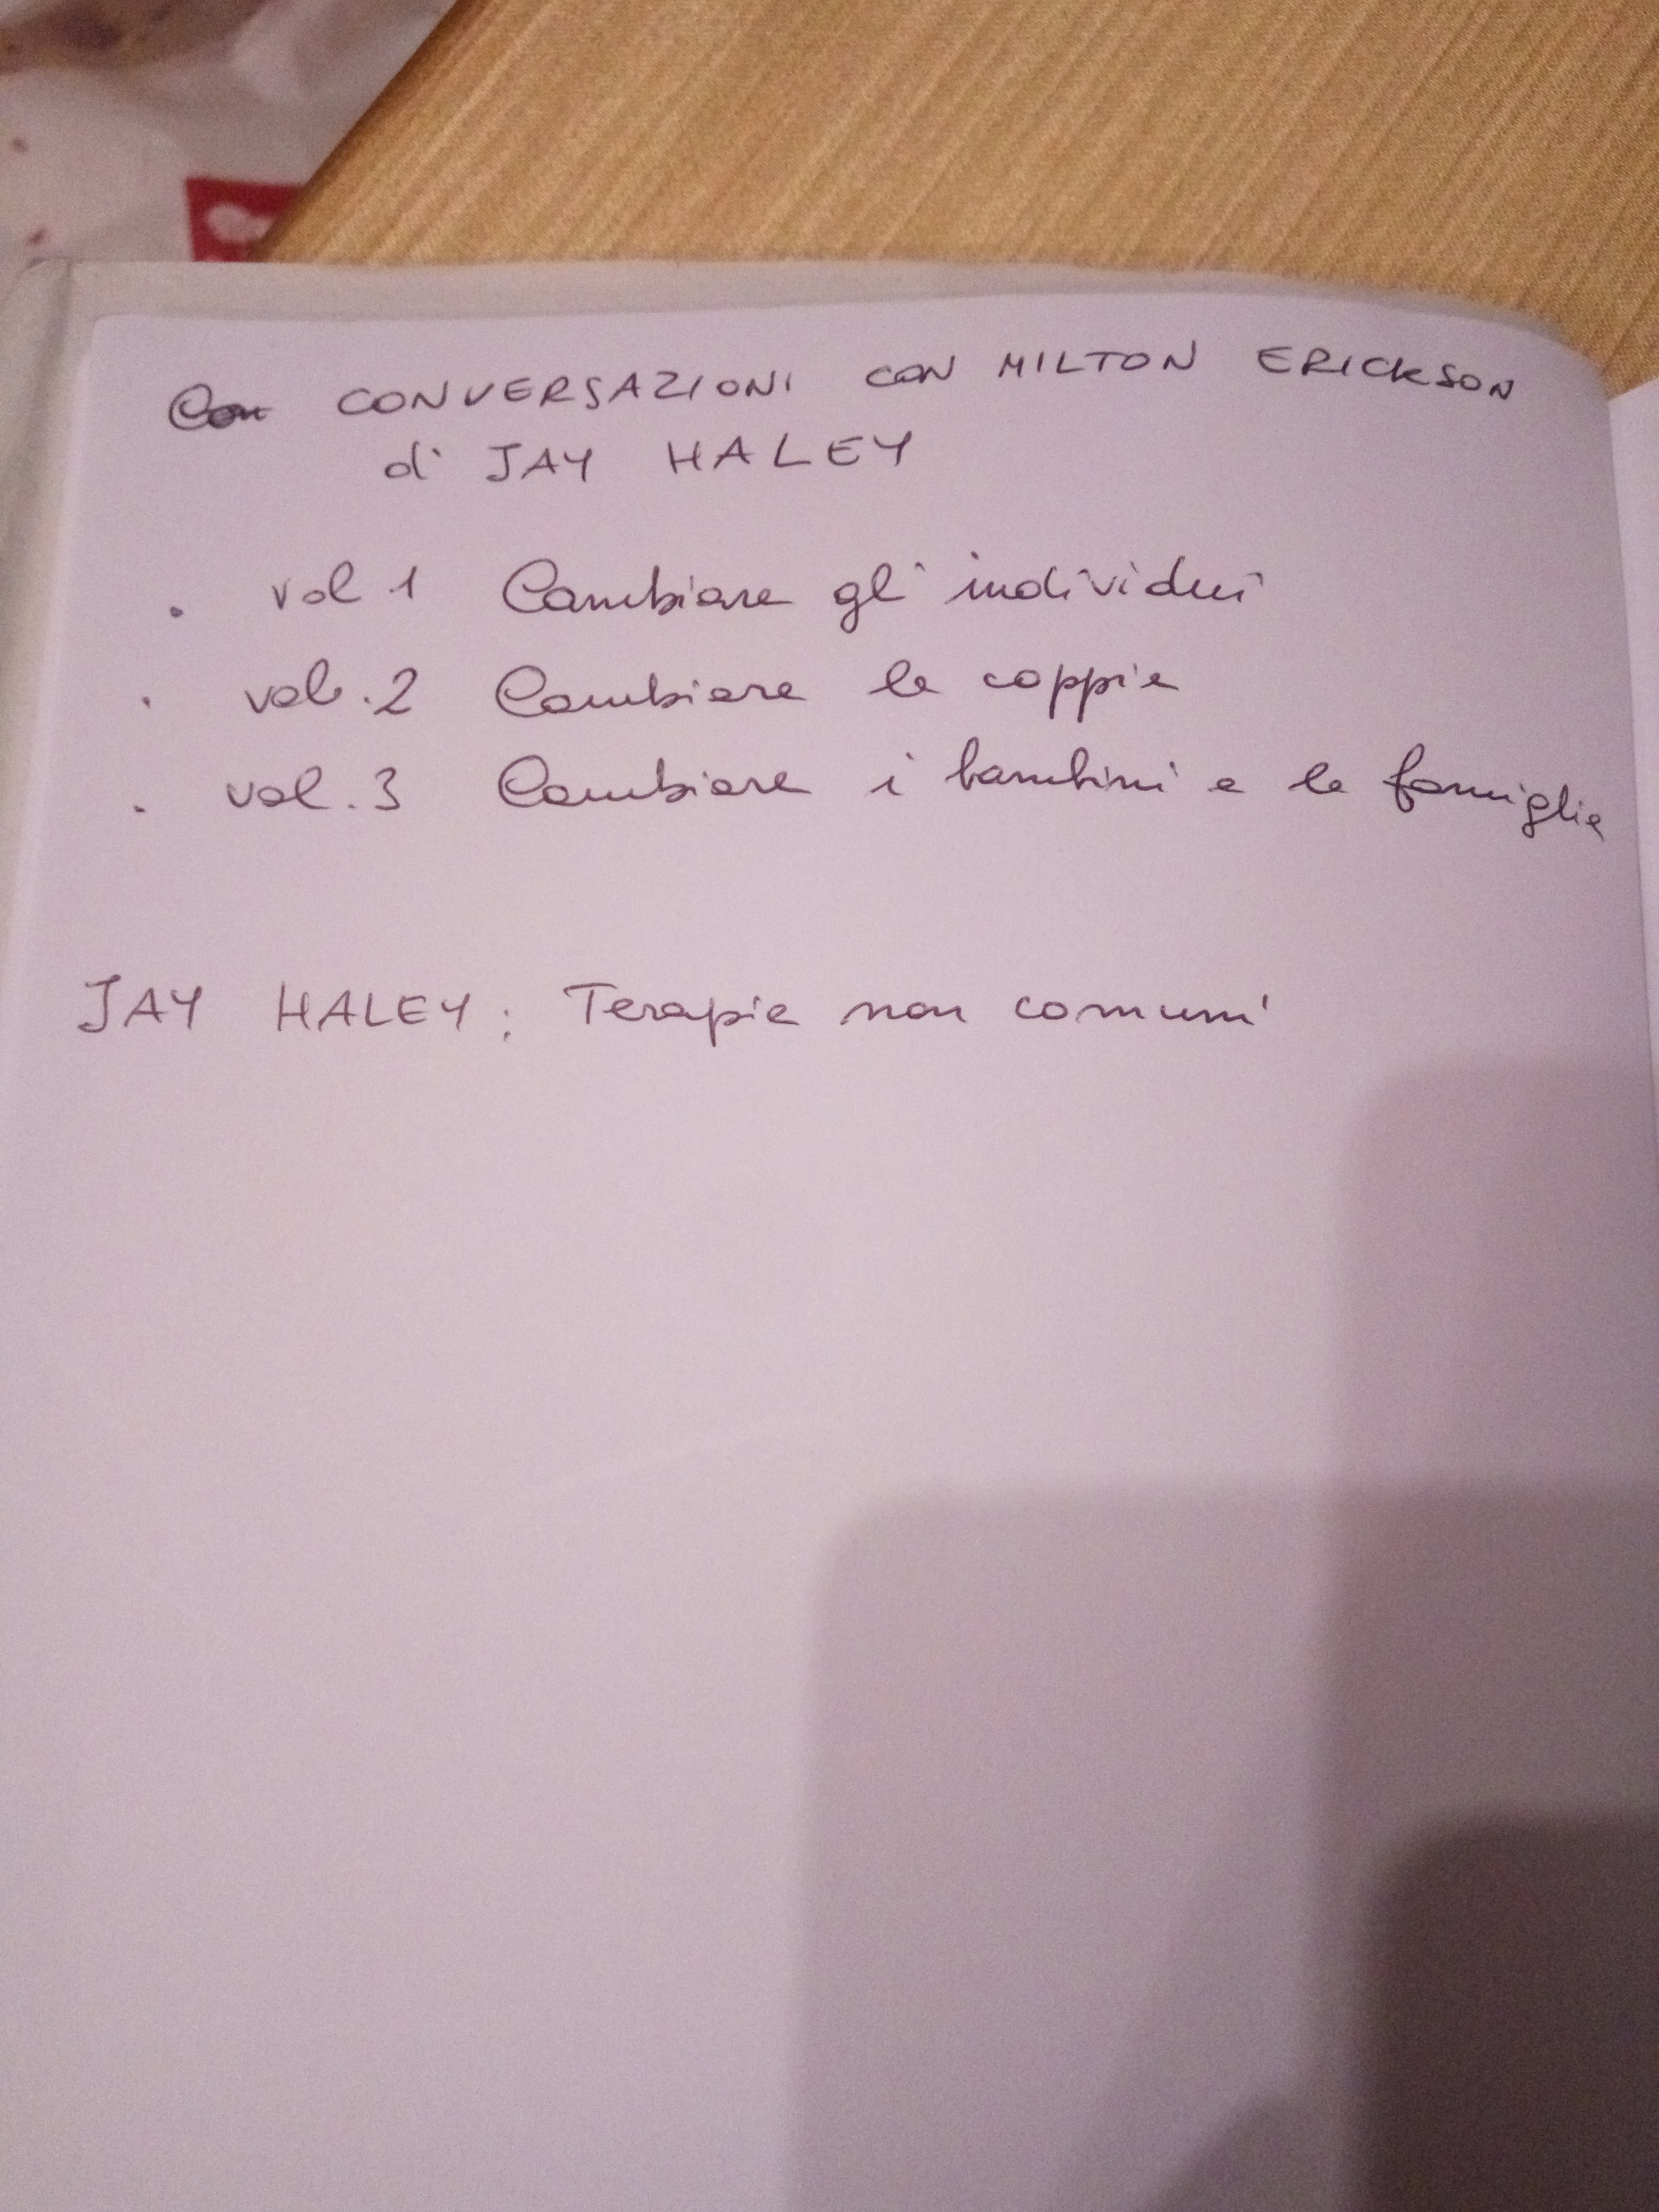 CONVERSAZIONI CON MILTON ERICKSON
di JAY HALEY
. vol 1 Cambiare gli individui
. vol. 2 Cambiare le coppie
. vol. 3 Cambiare i bambini e le famiglie
JAY HALEY: Terapie non comuni